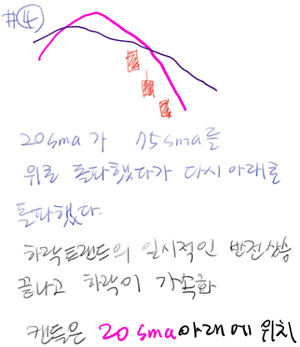 #④
20sma가 75sma를
위로 돌파했다가 다시 아래로
돌파했다.
하락트렌드의 일시적인 반전상승
끝나고 하락이 가속화
캔들은 20 sma아래에 위치